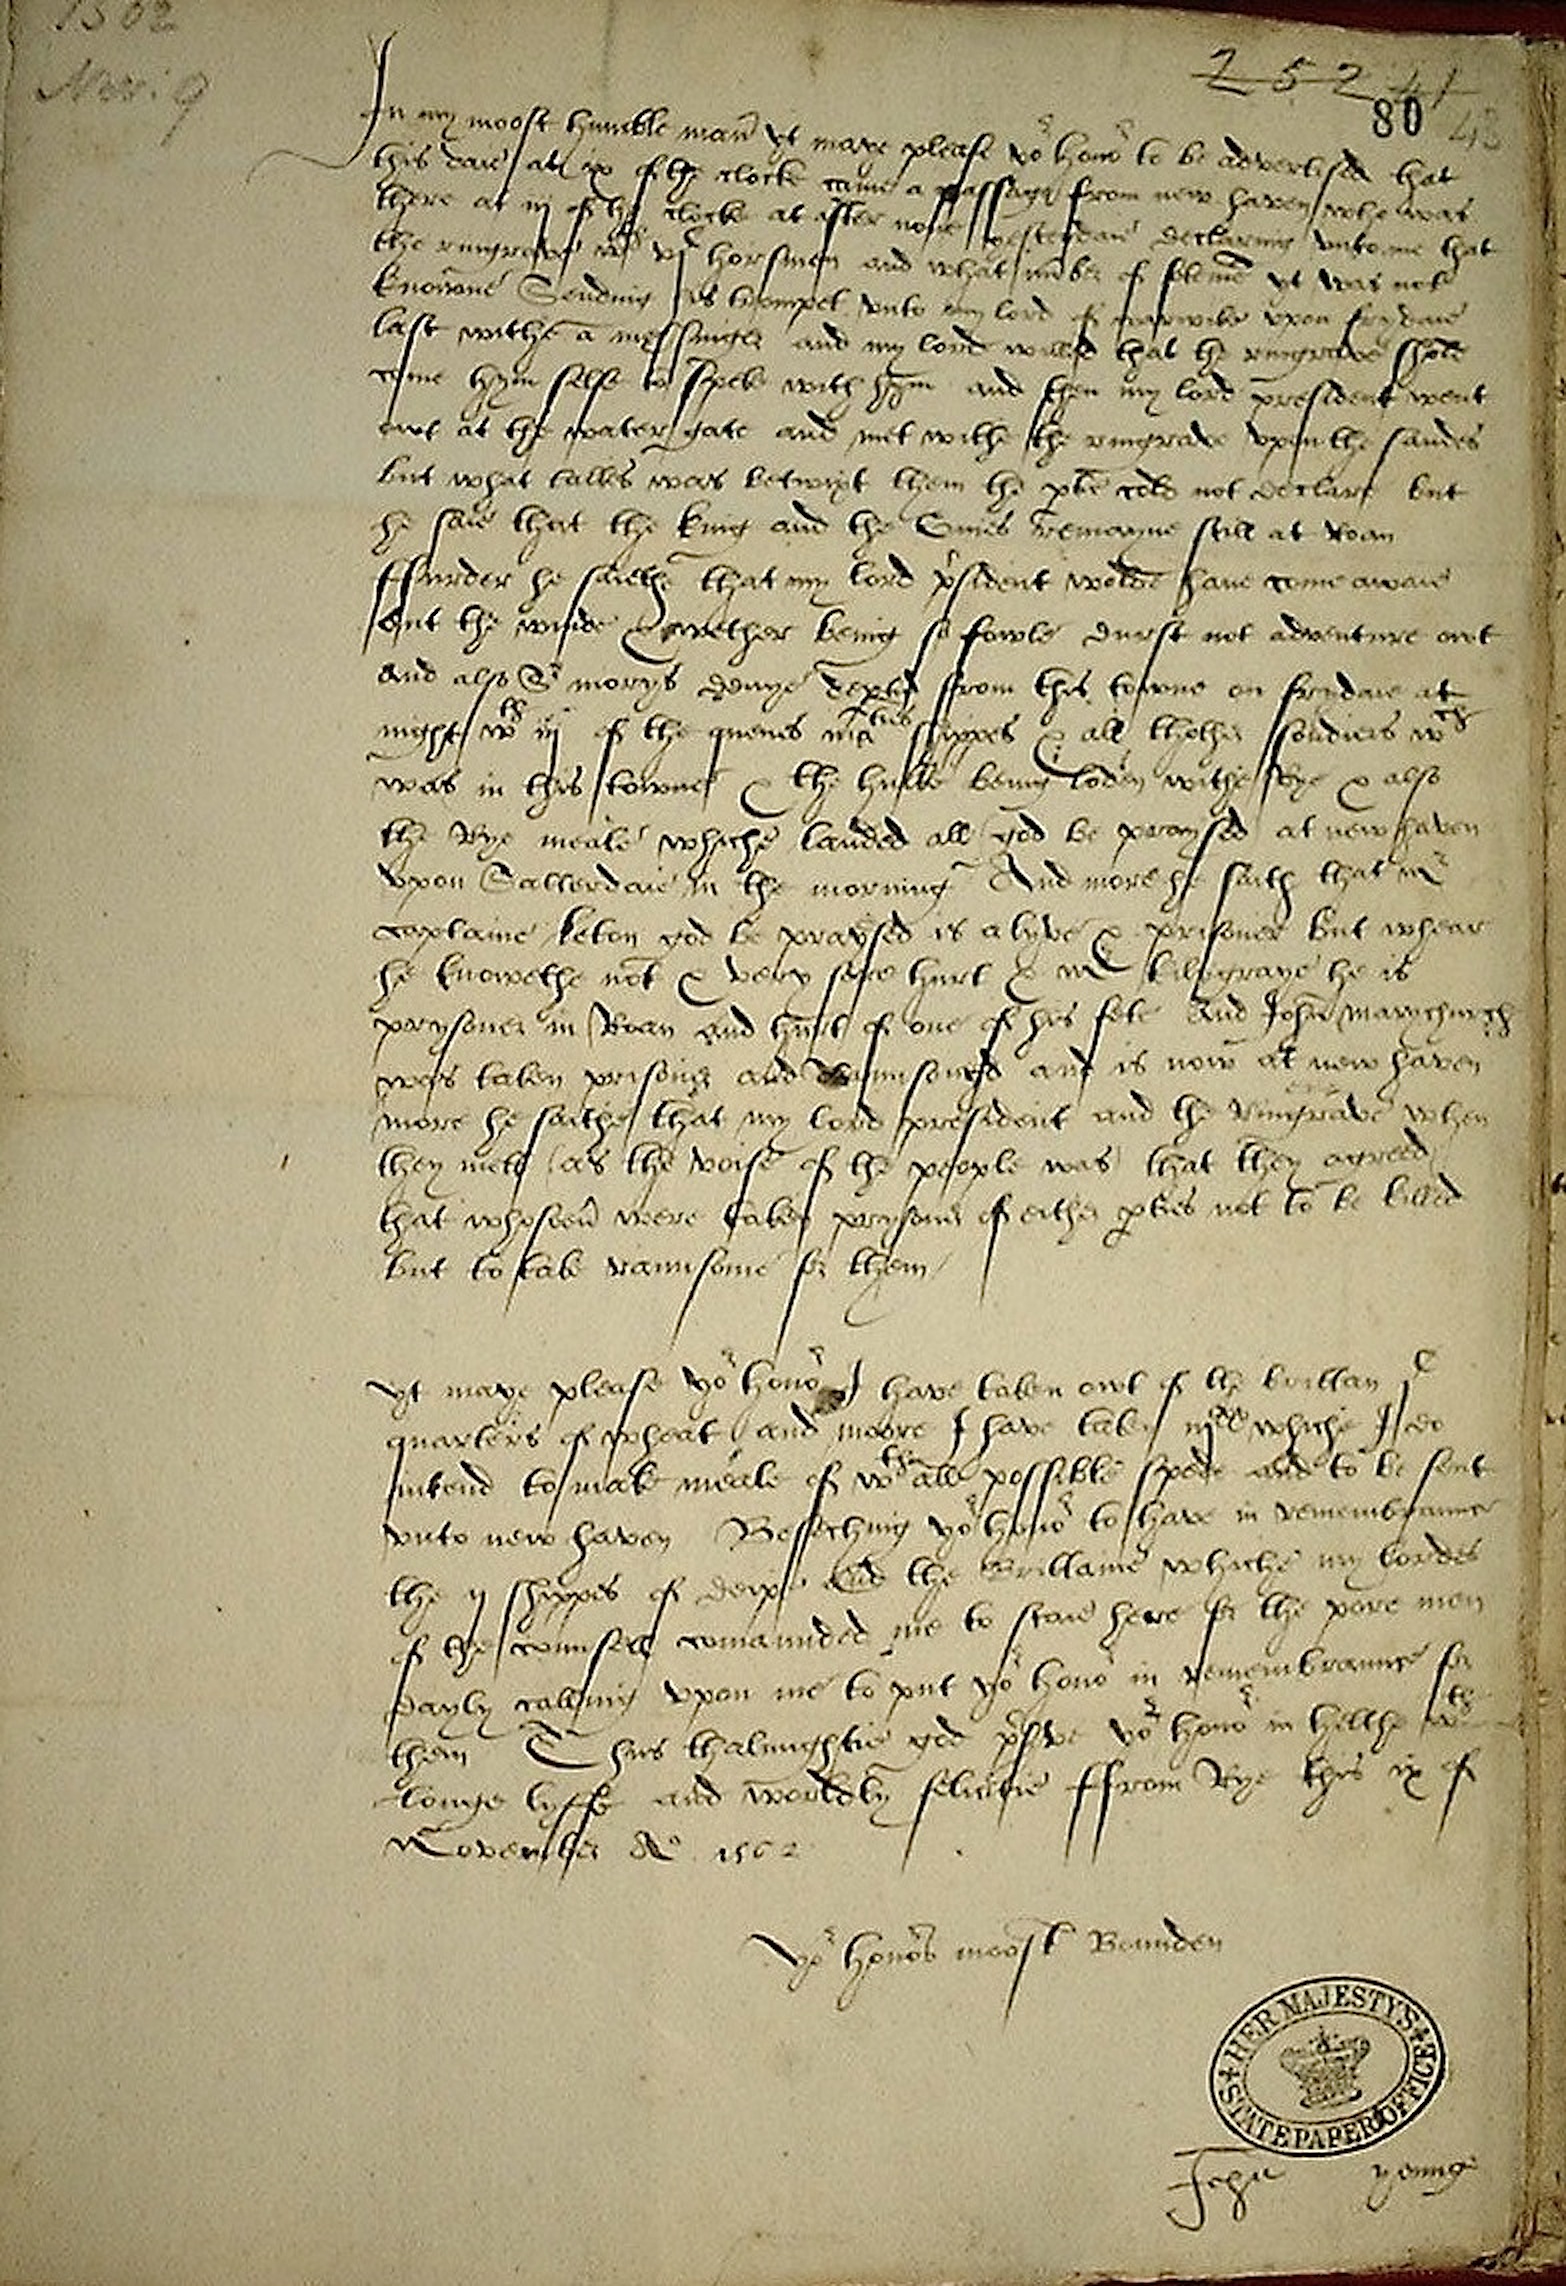 1562
Nov: 9
252 41
80 43
In my moost humble man̄ yt maye please yoʳ honoʳ to be advertised that
this daie at ix of the clocke came a passage from new haven who was
there at iij of the clocke at after none yesterdaie declaring unto me that
the ringrave wᵗʰ vjᶜ horsmen and what nūber of fote mē yt was not
knowne Sending his trompet unto my lord of warwike upon frydaie
last withe a messinger and my lord willed that the ringrave shold
come hym selfe to speke with hym and then my lord president went
owt at the water gate and met withe the ringrave upon the sandes
but what talkes was betwixt them the ptie cold not declare but
he saie that the king and the Guies remayne still at Roan
ffurder he saithe that my lord pʳsident wolde have come awaie
but the winde & wether being so fowle durst not adventure owt
and also Sʳ morys denye depted from this towne on frydaie at
night wᵗʰ iij of the quenes maᵗⁱᵉˢ shippes & all thother soudiers wᶜʰ
was in this towne & the hulke being loden withe Rye & also
the Rye meale whiche landed all god be praysed at new haven
upon Satterdaie in the morning And more he saith that mʳ
captaine keton god be praysed is alyve & prisoner but whear
he knowethe not & very sore hurt & mʳ kilygraye he is
prysoner in Roan and hurt of one of his fete And John marychurch
was taken prisoner and Raunsomed and is now at new haven
more he saithe that my lord president and the Ringrave when
they mett as the voise of the people was that they agreed
that whosoeũ were taken prysoner of either pties not to be killed
but to take raunsome for them
yt maye please yoʳ honoʳ I have taken owt of the brittan jᶜ
quarters of wheat and moore I have taken iijˣˣ whiche I do
intend to make meale of wᵗʰ all possible spede and to be sent
unto new haven Beseching yoʳ honoʳ to have in remembraunce
the ij shippes of deipe and the Brittaine whiche my lordes
of the counsell comaunded me to staie here for the pore men
dayly calling upon me to put yoʳ honoʳ in remembraunce for
them Thus thalmightie god pʳsve yoʳ honoʳ in helthe wᵗʰ
longe lyffe and worldly felicitie ffrom Rye this ix of
November Aº 1562
Yoʳ honoʳs moost Bounden
HER MAJESTY'S STATE PAPER OFFICE
John yonnge